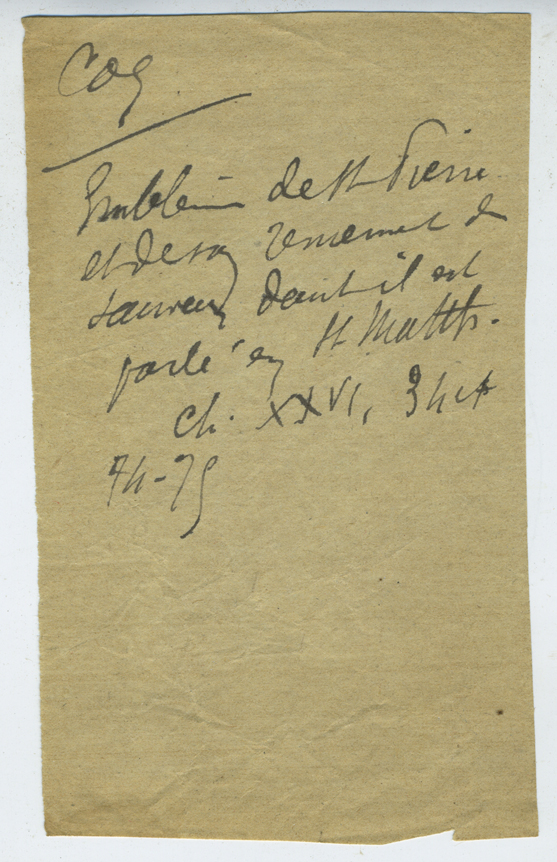 Coq
Emblème de St Pierre
et de son reniement du
sauveur dont il est
parlé en St Matth.
ch. XXVI, 34 et
74-75